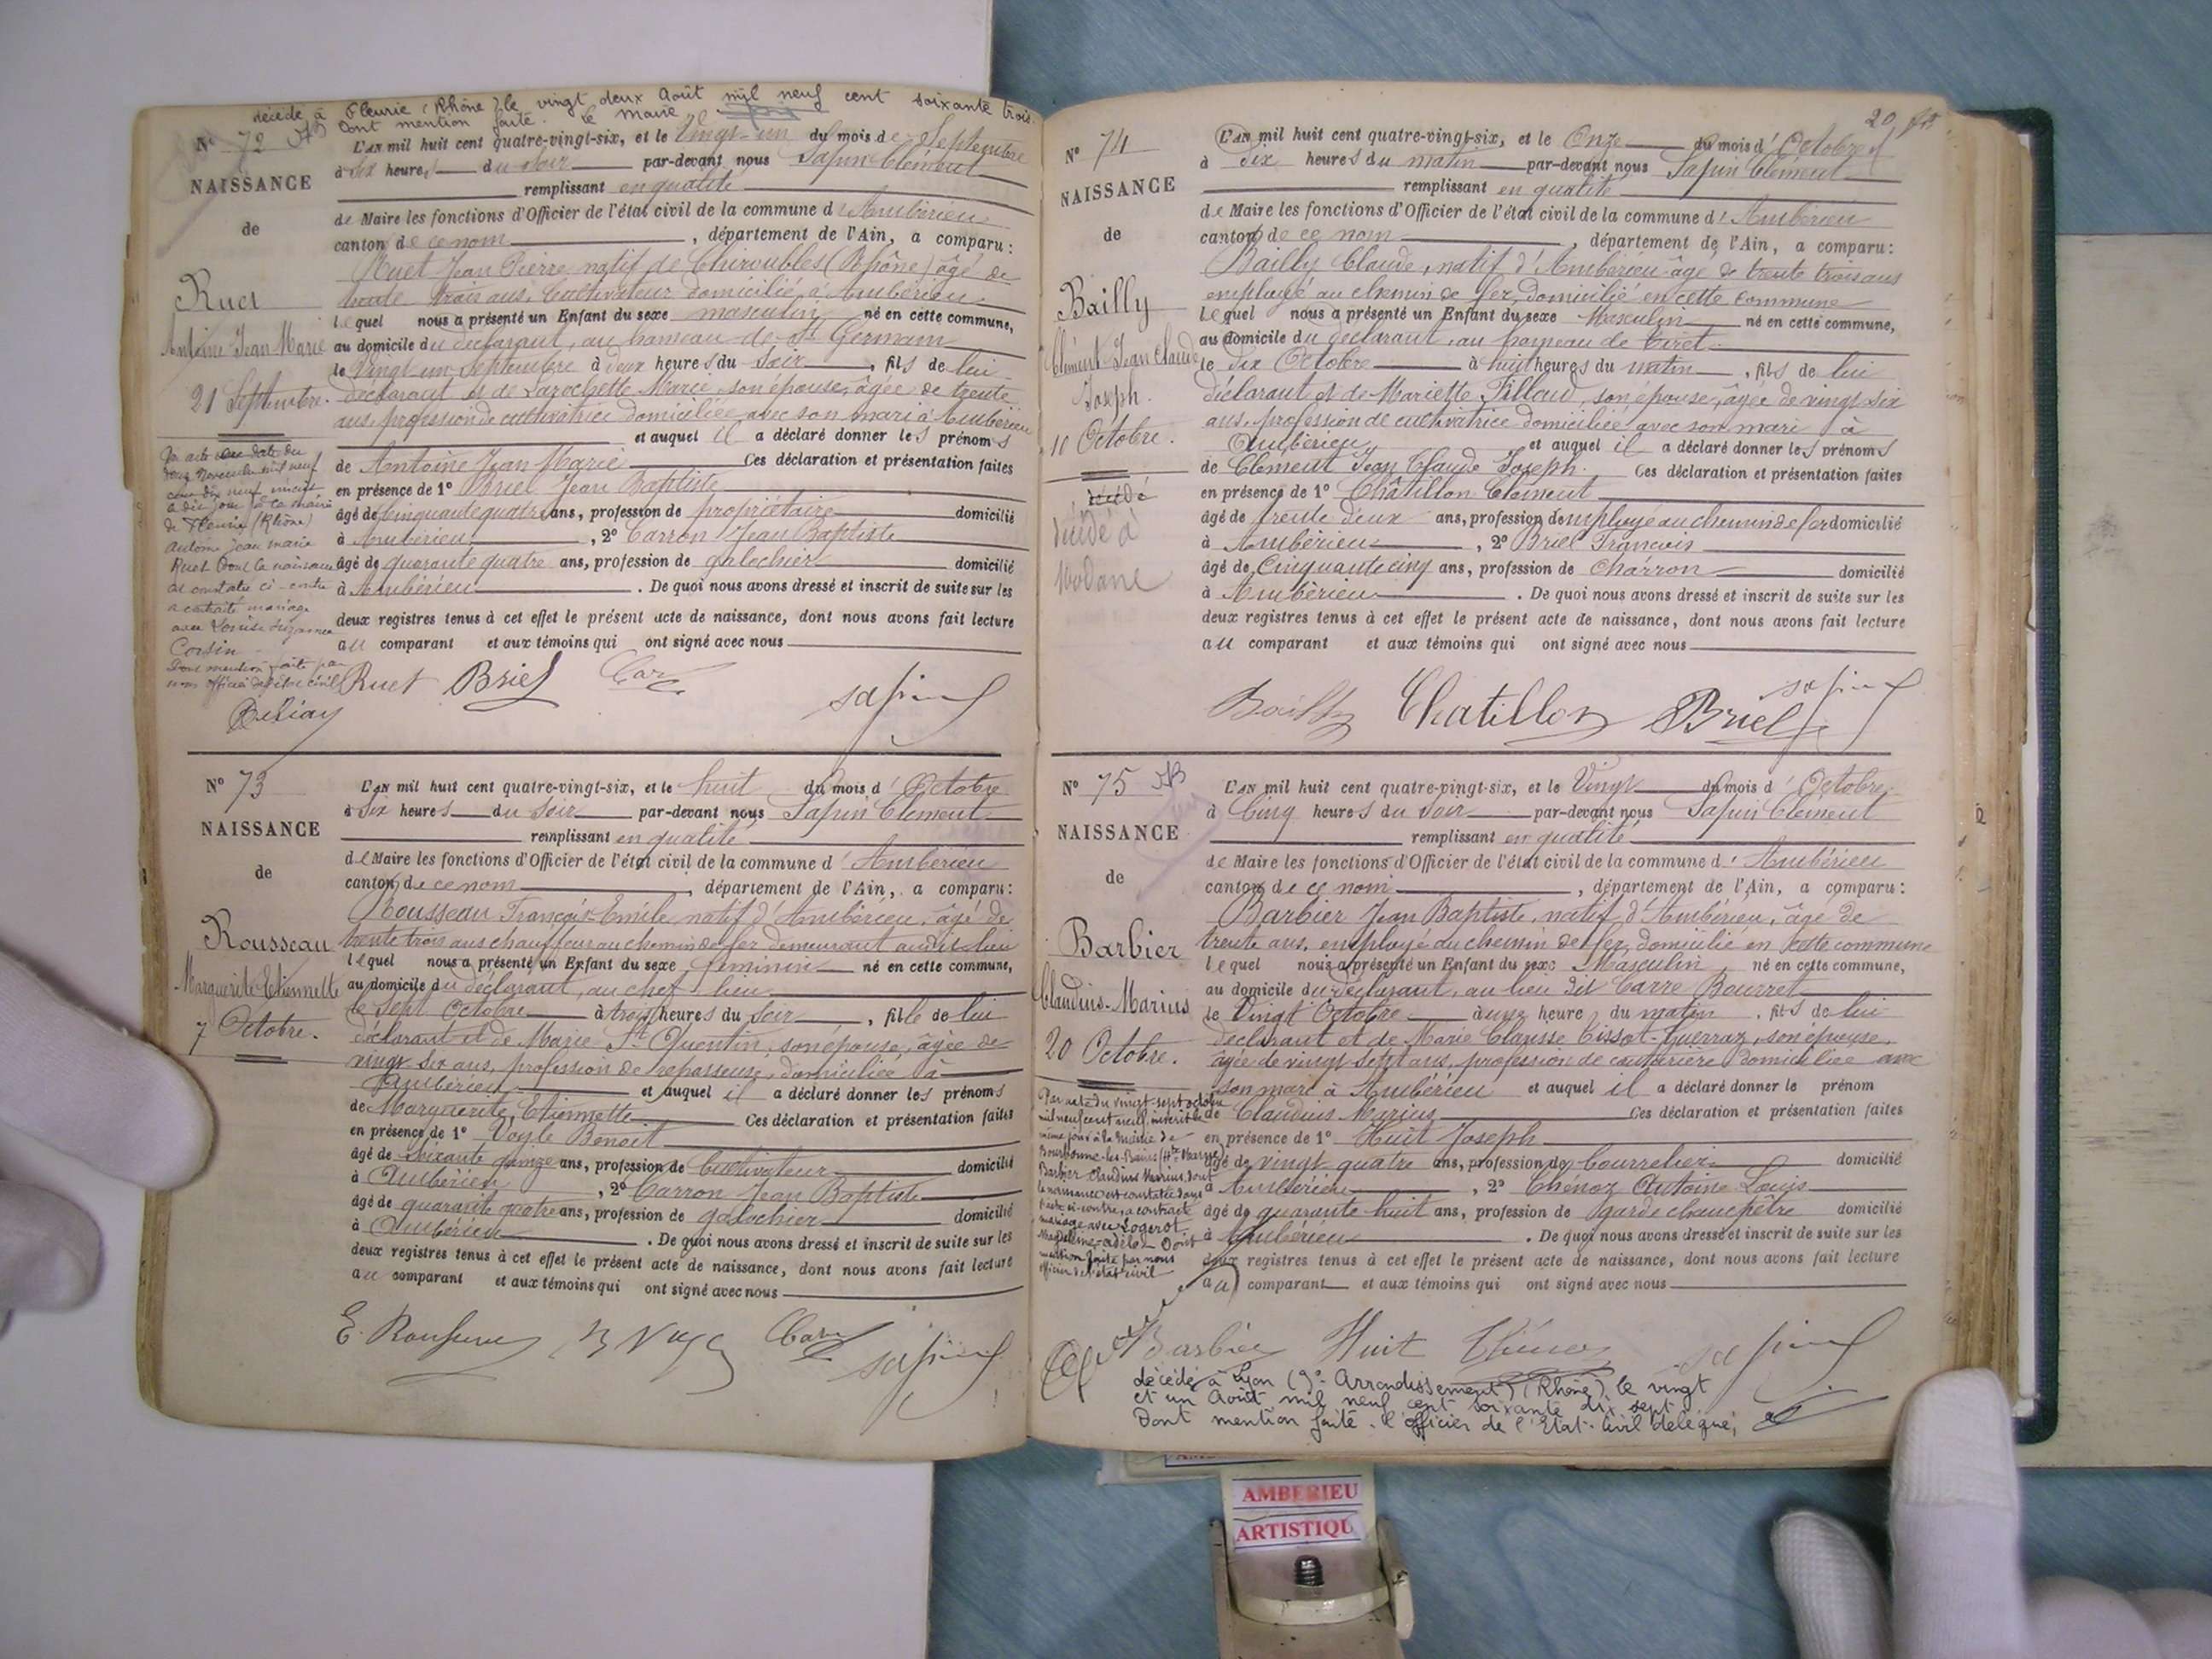 décédé à Fleurie (Rhône) le vingt deux Août mil neuf cent soixante trois.
Dont mention faite. le maire
N° 72
NAISSANCE
de
Ruet
Antoine Jean Marie
21 Septembre.
L'AN mil huit cent quatre-vingt-six, et le Vingt-un du mois de Septembre
à six heures du soir par-devant nous Sapin Clément
remplissant en qualité
de Maire les fonctions d'Officier de l'état civil de la commune d'Ambérieu
canton de ce nom, département de l'Ain, a comparu :
Ruet Jean Pierre, natif de Chiroubles (Rhône) âgé de
trente trois ans, Cultivateur domicilié à Ambérieu
lequel nous a présenté un Enfant du sexe masculin né en cette commune,
au domicile du déclarant, au hameau de St Germain
le Vingt un Septembre à deux heures du soir, fils de lui
déclarant et de Larochette Marie son épouse, âgée de trente
ans, profession de cultivatrice domiciliée avec son mari à Ambérieu
et auquel il a déclaré donner les prénoms
de Antoine Jean Marie Ces déclaration et présentation faites
en présence de 1° Briel Jean Baptiste
âgé de Cinquante quatre ans, profession de propriétaire domicilié
à Ambérieu, 2° Carron Jean Baptiste
âgé de quarante quatre ans, profession de galochier domicilié
à Ambérieu. De quoi nous avons dressé et inscrit de suite sur les
deux registres tenus à cet effet le présent acte de naissance, dont nous avons fait lecture
au comparant et aux témoins qui ont signé avec nous
Par acte en date du
Novembre mil neuf
cent dix neuf inscrit
le dit jour à la mairie
de Fleurie (Rhône)
Antoine Jean Marie
Ruet dont la naissance
est constatée ci-contre
a contracté mariage
avec Louise Suzanne
Corsin
Dont mention faite par
nous officier de l'état civil
Ruet Briel Car Sapin
N° 73
NAISSANCE
de
Rousseau
Marguerite Etiennette
7 Octobre.
L'AN mil huit cent quatre-vingt-six, et le huit du mois d'Octobre
à six heures du soir par-devant nous Sapin Clément
remplissant en qualité
de Maire les fonctions d'Officier de l'état civil de la commune d'Ambérieu
canton de ce nom, département de l'Ain, a comparu :
Rousseau François-Emile natif d'Ambérieu, âgé de
trente trois ans chauffeur au chemin de fer demeurant audit lieu
lequel nous a présenté un Enfant du sexe féminin né en cette commune,
au domicile du déclarant, au chef lieu
le sept Octobre à trois heures du soir, fille de lui
déclarant et de Marie St Quentin, son épouse, âgée de
vingt six ans, profession de repasseuse, domiciliée à
Ambérieu et auquel il a déclaré donner les prénoms
de Marguerite Etiennette Ces déclaration et présentation faites
en présence de 1° Voyle Benoit
âgé de soixante quinze ans, profession de Cultivateur domicilié
à Ambérieu, 2° Carron Jean Baptiste
âgé de quarante quatre ans, profession de galochier domicilié
à Ambérieu. De quoi nous avons dressé et inscrit de suite sur les
deux registres tenus à cet effet le présent acte de naissance, dont nous avons fait lecture
au comparant et aux témoins qui ont signé avec nous
E. Rousseau Sapin
20
N° 74
NAISSANCE
de
Bailly
Clément Jean Claude
Joseph.
10 Octobre.
décédé
décédé à
Modane
L'AN mil huit cent quatre-vingt-six, et le Onze du mois d'Octobre
à dix heures du matin par-devant nous Sapin Clément
remplissant en qualité
de Maire les fonctions d'Officier de l'état civil de la commune d'Ambérieu
canton de ce nom, département de l'Ain, a comparu :
Bailly Claude, natif d'Ambérieu âgé de trente trois ans
employé au chemin de fer, domicilié en cette commune
lequel nous a présenté un Enfant du sexe Masculin né en cette commune,
au domicile du déclarant, au hameau de Tiret
le dix Octobre à huit heures du matin, fils de lui
déclarant et de Mariette Tillaud, son épouse, âgée de vingt six
ans, profession de cultivatrice domiciliée avec son mari à
Ambérieu et auquel il a déclaré donner les prénoms
de Clément Jean Claude Joseph. Ces déclaration et présentation faites
en présence de 1° Châtillon Clément
âgé de trente deux ans, profession d'employé au chemin de fer domicilié
à Ambérieu, 2° Briel François
âgé de Cinquante cinq ans, profession de Charron domicilié
à Ambérieu. De quoi nous avons dressé et inscrit de suite sur les
deux registres tenus à cet effet le présent acte de naissance, dont nous avons fait lecture
au comparant et aux témoins qui ont signé avec nous
Bailly Chatillon Briel Sapin
N° 75
NAISSANCE
de
Barbier
Claudius-Marius
20 Octobre.
L'AN mil huit cent quatre-vingt-six, et le Vingt du mois d'Octobre
à Cinq heures du soir par-devant nous Sapin Clément
remplissant en qualité
de Maire les fonctions d'Officier de l'état civil de la commune d'Ambérieu
canton de ce nom, département de l'Ain, a comparu :
Barbier Jean Baptiste, natif d'Ambérieu, âgé de
trente ans, employé au chemin de fer, domicilié en cette commune
lequel nous a présenté un Enfant du sexe Masculin né en cette commune,
au domicile du déclarant, au lieu dit Carre Bourret
le Vingt Octobre à une heure du matin, fils de lui
déclarant et de Marie Clausse Cissot-Guerraz, son épouse,
âgée de vingt sept ans, profession de couturière domiciliée avec
son mari à Ambérieu et auquel il a déclaré donner le prénom
de Claudius Marius Ces déclaration et présentation faites
en présence de 1° Huit Joseph
âgé de vingt quatre ans, profession de bourrelier domicilié
à Ambérieu, 2° Chénoz Antoine Louis
âgé de quarante huit ans, profession de garde champêtre domicilié
à Ambérieu. De quoi nous avons dressé et inscrit de suite sur les
deux registres tenus à cet effet le présent acte de naissance, dont nous avons fait lecture
au comparant et aux témoins qui ont signé avec nous
Par acte du vingt-sept octobre
mil neuf cent neuf, inscrit le
même jour à la mairie de
Bourbonne-les-Bains (Hte Marne)
Barbier Claudius Marius, dont
la naissance est constatée dans
l'acte ci-contre, a contracté
mariage avec Logerot
Madeleine-Adèle. Dont
mention faite par nous
officier de l'état civil
Barbier Huit Chénoz Sapin
décédé à Lyon (9e Arrondissement) (Rhône), le vingt
et un Août mil neuf cent soixante dix sept.
Dont mention faite. l'officier de l'Etat-Civil délégué,
AMBERIEU
ARTISTIQU